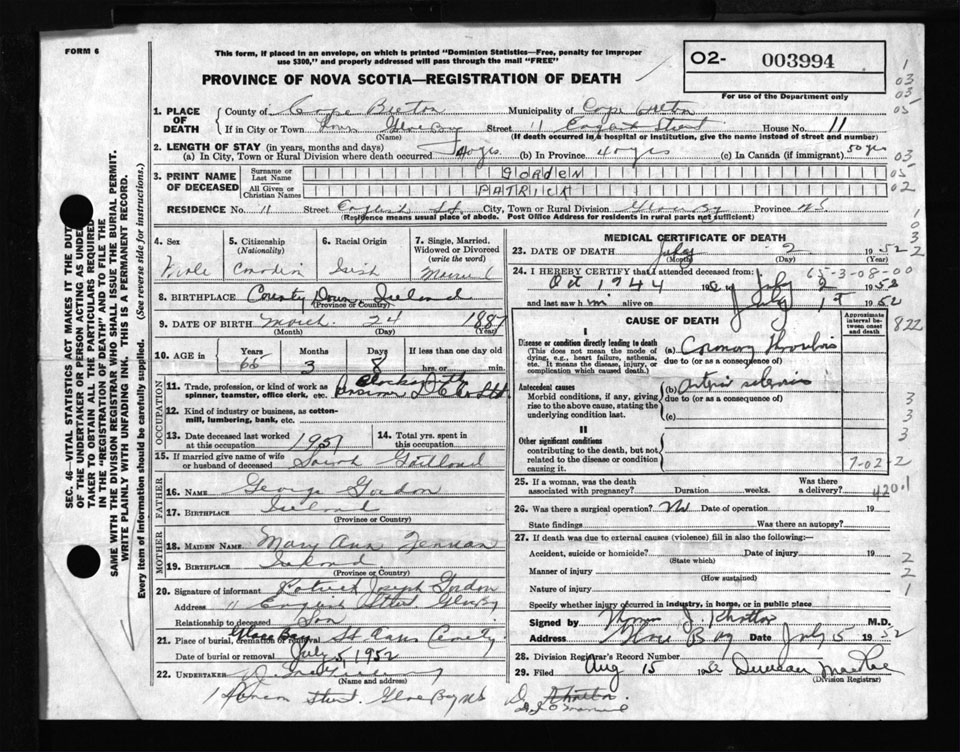 FORM 6
This form, if placed in an envelope, on which is printed "Dominion Statistics—Free, penalty for improper
use $300," and properly addressed will pass through the mail "FREE"
PROVINCE OF NOVA SCOTIA—REGISTRATION OF DEATH
O2- 003994
For use of the Department only
SEC. 46—VITAL STATISTICS ACT MAKES IT THE DUTY
OF THE UNDERTAKER OR PERSON ACTING AS UNDER-
TAKER TO OBTAIN ALL THE PARTICULARS REQUIRED
IN THE "REGISTRATION OF DEATH" AND TO FILE THE
SAME WITH THE DIVISION REGISTRAR WHO SHALL ISSUE THE BURIAL PERMIT.
WRITE PLAINLY WITH UNFADING INK. THIS IS A PERMANENT RECORD.
Every item of information should be carefully supplied. (See reverse side for instructions.)
1. PLACE OF DEATH
County of Cape Breton Municipality of Cape Breton
If in City or Town Town Glace Bay Street 11 English Street House No. 11
(Name) (If death occurred in a hospital or institution, give the name instead of street and number)
2. LENGTH OF STAY (in years, months and days)
(a) In City, Town or Rural Division where death occurred 40 yrs (b) In Province 40 yrs (c) In Canada (if immigrant) 50 yrs
3. PRINT NAME OF DECEASED
Surname or Last Name GORDEN
All Given or Christian Names PATRICK
RESIDENCE No. 11 Street English St City, Town or Rural Division Glace Bay Province NS
(Residence means usual place of abode. Post Office Address for residents in rural parts not sufficient)
4. Sex Male
5. Citizenship (Nationality) Canadian
6. Racial Origin Irish
7. Single, Married, Widowed or Divorced (write the word) Married
8. BIRTHPLACE County Down, Ireland
(Province or Country)
9. DATE OF BIRTH March 24 1887
(Month) (Day) (Year)
10. AGE in Years 65 Months 3 Days 8 If less than one day old
hrs. or min.
OCCUPATION
11. Trade, profession, or kind of work as
spinner, teamster, office clerk, etc. Blacksmith
12. Kind of industry or business, as cotton-
mill, lumbering, bank, etc.
13. Date deceased last worked
at this occupation 1951
14. Total yrs. spent in
this occupation
15. If married give name of wife
or husband of deceased Sarah
FATHER
16. NAME George Gordon
17. BIRTHPLACE Ireland
(Province or Country)
MOTHER
18. MAIDEN NAME Mary Ann
19. BIRTHPLACE Ireland
(Province or Country)
20. Signature of informant Patrick Joseph Gordon
Address 11 English Street Glace Bay
Relationship to deceased Son
21. Place of burial, cremation or removal Glace Bay St Anns Cemetery
Date of burial or removal July 5, 1952
22. UNDERTAKER
(Name and address)
Street. Glace Bay NS
MEDICAL CERTIFICATE OF DEATH
23. DATE OF DEATH July 2 1952
(Month) (Day) (Year)
24. I HEREBY CERTIFY that I attended deceased from: 65-3-08-00
Oct 1944 19 to July 2 1952
and last saw him alive on July 1st 1952
CAUSE OF DEATH
Approximate interval between onset and death
I
Disease or condition directly leading to death
(This does not mean the mode of
dying, e.g., heart failure, asthenia,
etc. It means the disease, injury, or
complication which caused death.)
(a) Coronary thrombosis
due to (or as a consequence of)
Antecedent causes
Morbid conditions, if any, giving
rise to the above cause, stating the
underlying condition last.
(b) Arterio sclerosis
due to (or as a consequence of)
(c)
II
Other significant conditions
contributing to the death, but not
related to the disease or condition
causing it.
7-02-2
25. If a woman, was the death
associated with pregnancy? Duration weeks. Was there a delivery?
420.1
26. Was there a surgical operation? No Date of operation 19
State findings Was there an autopsy?
27. If death was due to external causes (violence) fill in also the following:
Accident, suicide or homicide? Date of injury 19
(State which)
Manner of injury
(How sustained)
Nature of injury
Specify whether injury occurred in industry, in home, or in public place
Signed by M.D.
Address Glace Bay Date July 5 1952
28. Division Registrar's Record Number
29. Filed Aug 15 1952 Duncan
(Division Registrar)
1
03
03
05
03
05
02
1
03
2
822
3
3
3
2
2
1